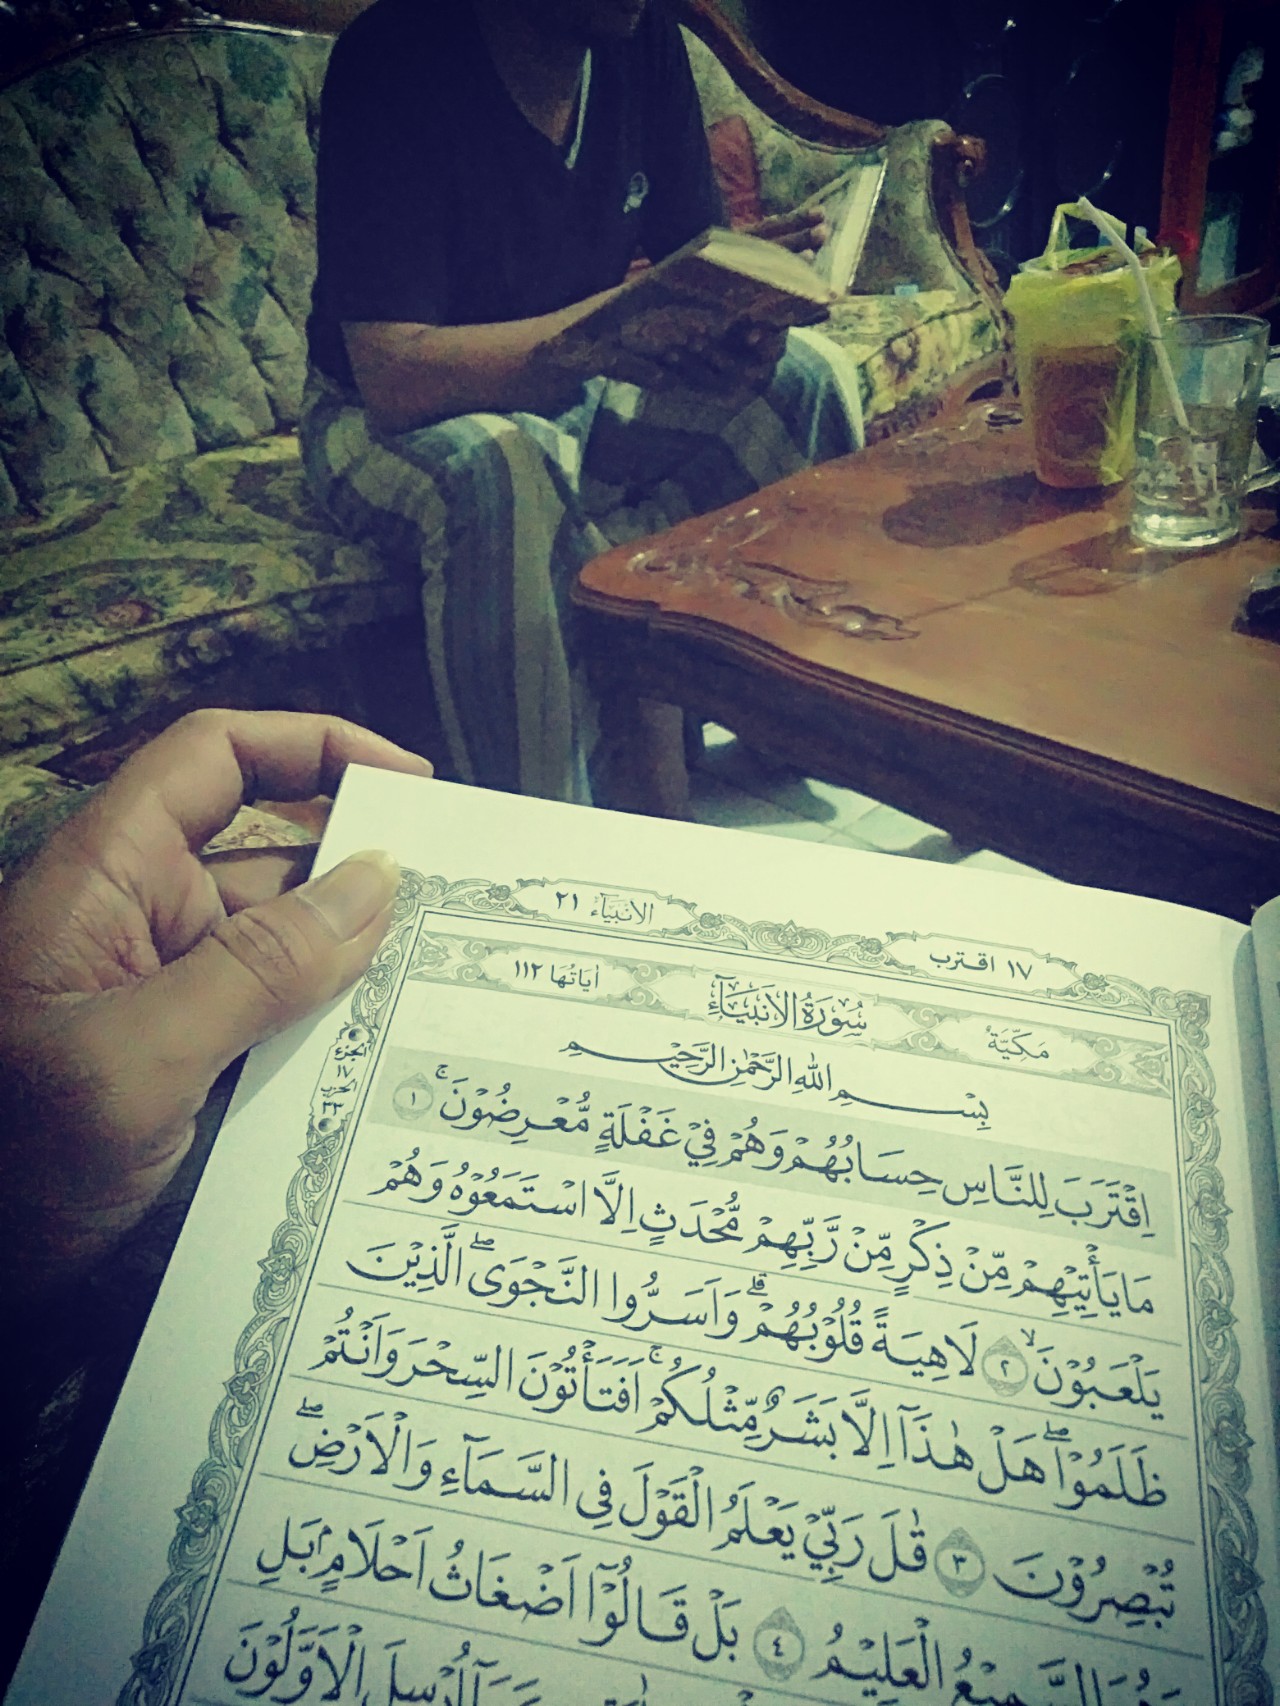 ١٧ اقترب
الانبيآء ٢١
مَكِّيَّةٌ
سُوْرَةُ الْاَنْبِيَآءِ
اٰيَاتُهَا ١١٢
بِسْمِ اللهِ الرَّحْمٰنِ الرَّحِيْمِ
اِقْتَرَبَ لِلنَّاسِ حِسَابُهُمْ وَهُمْ فِيْ غَفْلَةٍ مُّعْرِضُوْنَ ۚ ١
مَا يَأْتِيْهِمْ مِّنْ ذِكْرٍ مِّنْ رَّبِّهِمْ مُّحْدَثٍ اِلَّا اسْتَمَعُوْهُ وَهُمْ
يَلْعَبُوْنَ ۙ ٢ لَاهِيَةً قُلُوْبُهُمْ ۗ وَاَسَرُّوا النَّجْوَى ۖ الَّذِيْنَ
ظَلَمُوْا ۖ هَلْ هٰذَآ اِلَّا بَشَرٌ مِّثْلُكُمْ ۚ اَفَتَأْتُوْنَ السِّحْرَ وَاَنْتُمْ
تُبْصِرُوْنَ ٣ قٰلَ رَبِّيْ يَعْلَمُ الْقَوْلَ فِى السَّمَآءِ وَالْاَرْضِ ۖ
وَهُوَ السَّمِيْعُ الْعَلِيْمُ ٤ بَلْ قَالُوْٓا اَضْغَاثُ اَحْلَامٍۢ بَلِ
اُرْسِلَ الْاَوَّلُوْنَ
الجزء
١٧
الحزب
٣٣